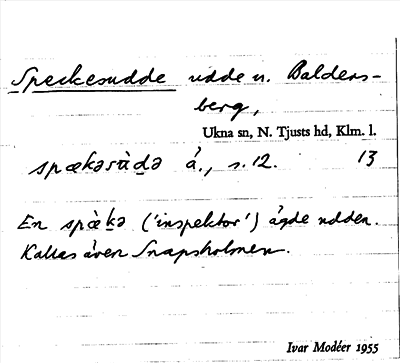 Speckesudde udde n. Balders-
berg,
Ukna sn, N. Tjusts hd, Klm. l.
spækəsùdə å., s. 12. 13
En spækə ('inspektor') ägde udden.
Kallas även Snapsholmen.
Ivar Modéer 1955